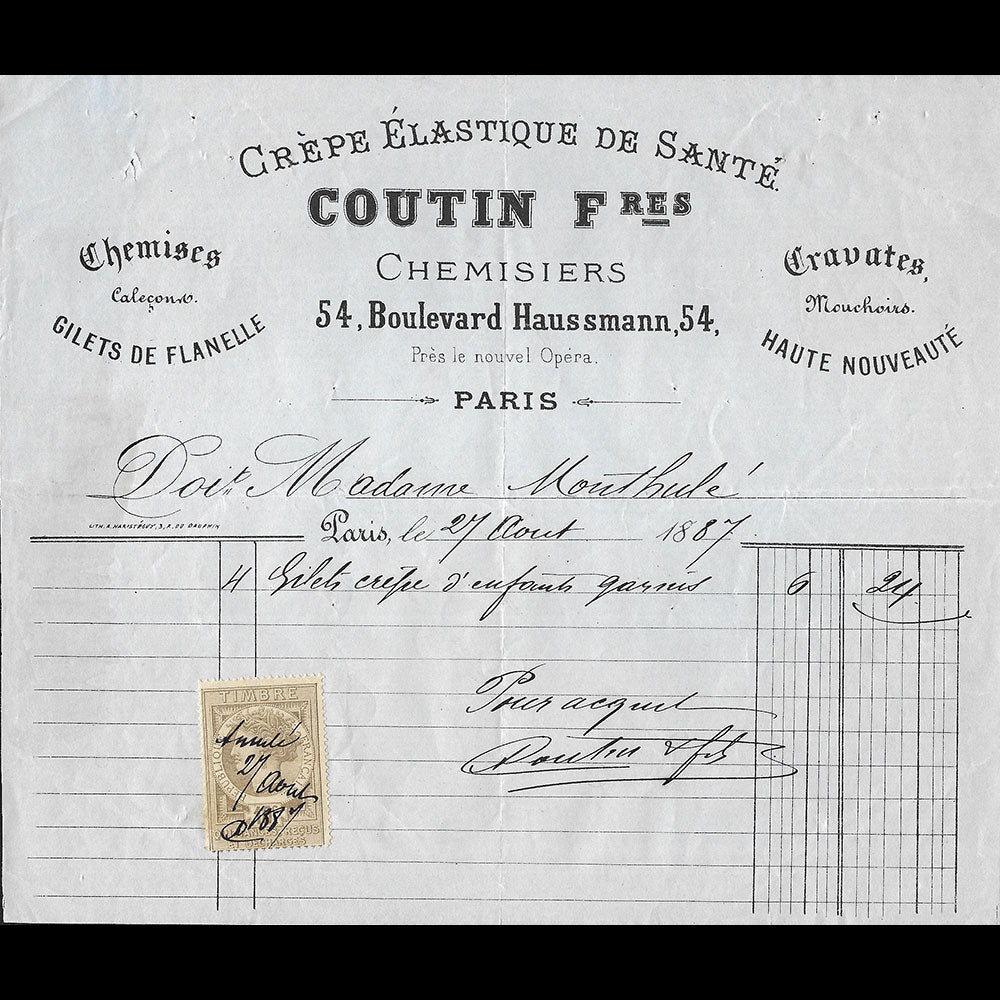 CRÈPE ÉLASTIQUE DE SANTÉ.
COUTIN FRES
CHEMISIERS
54, Boulevard Haussmann, 54,
Près le nouvel Opéra.
PARIS
Chemises
Caleçons.
GILETS DE FLANELLE
Cravates,
Mouchoirs.
HAUTE NOUVEAUTÉ
Doit Madame Monthulé
LITH. A. HARISTÉGUY, 3, R. DU DAUPHIN
Paris, le 27 Aout 1887
4 Gilets crêpe d'enfants garnis 6 24
Pour acquit
Coutin & frs
TIMBRE
RÉPUBLIQUE FRANÇAISE
Annulé
27
Aout
1887
QUITTANCES REÇUS
ET DÉCHARGES